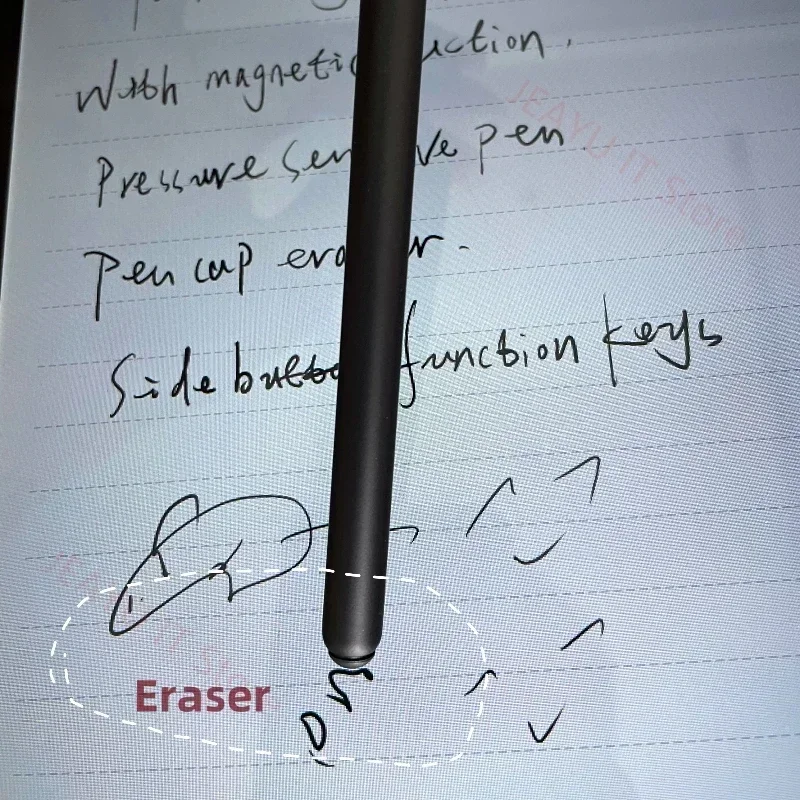 With magnetic uction.
Pressure sen ve pen
Pen cap era r.
Side butto function keys
JEAYU IT Store
Eraser